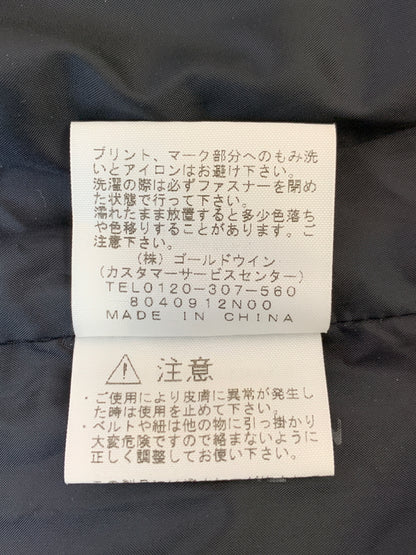 プリント、マーク部分へのもみ洗
いとアイロンはお避け下さい。
洗濯の際は必ずファスナーを閉め
た状態で行って下さい。
濡れたまま放置すると多少色落ち
や色移りすることがあります。ご
注意下さい。
(株)ゴールドウイン
(カスタマーサービスセンター)
TEL0120-307-560
8040912N00
MADE IN CHINA
注意
・ご使用により皮膚に異常が発生し
た時は使用を止めて下さい。
・ベルトや紐は他の物に引っ掛かり
大変危険ですので絡まないように
正しく調整してお使い下さい。